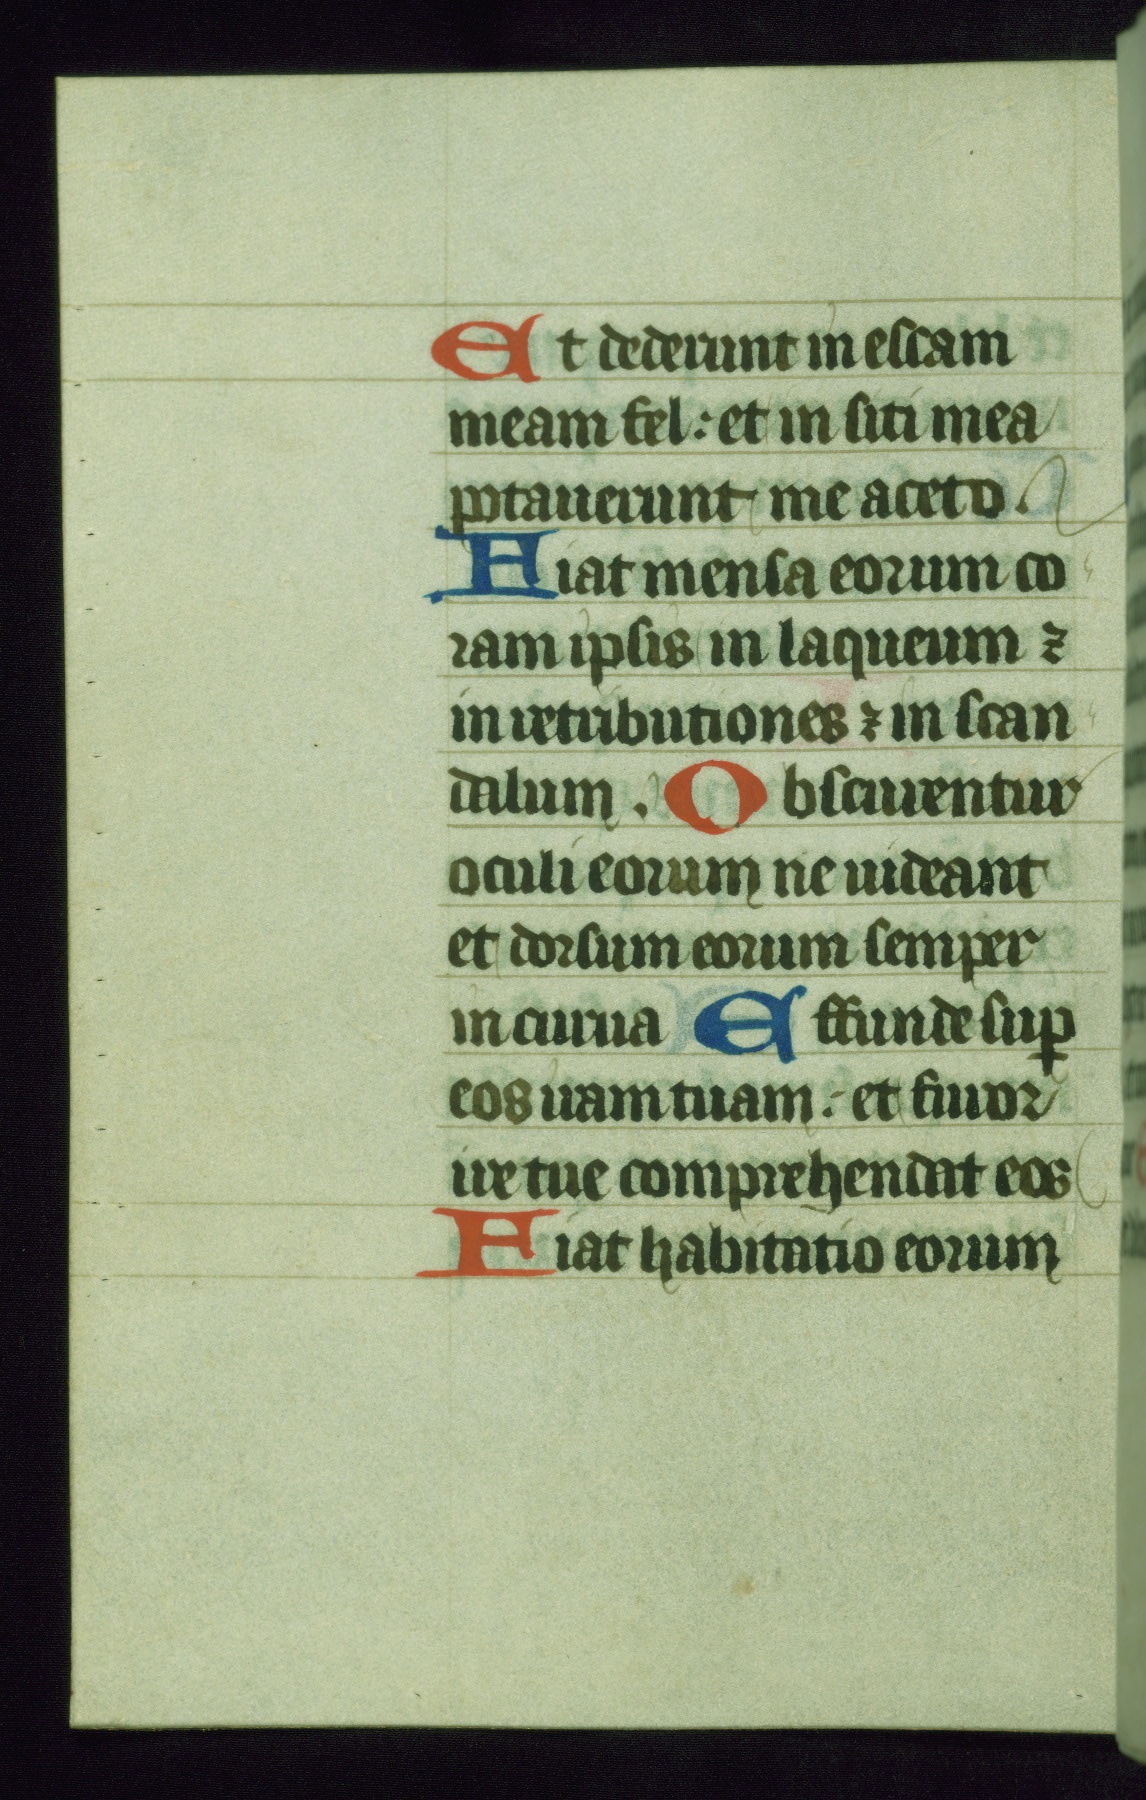 Et dederunt in escam
meam fel : et in siti mea
potauerunt me aceto .
Fiat mensa eorum co
ram ipsis in laqueum ⁊
in retributiones ⁊ in scan
dalum . Obscurentur
oculi eorum ne uideant
et dorsum eorum semper
incurua Effunde suꝑ
eos iram tuam : et furor
ire tue comprehendat eos
Fiat habitatio eorum